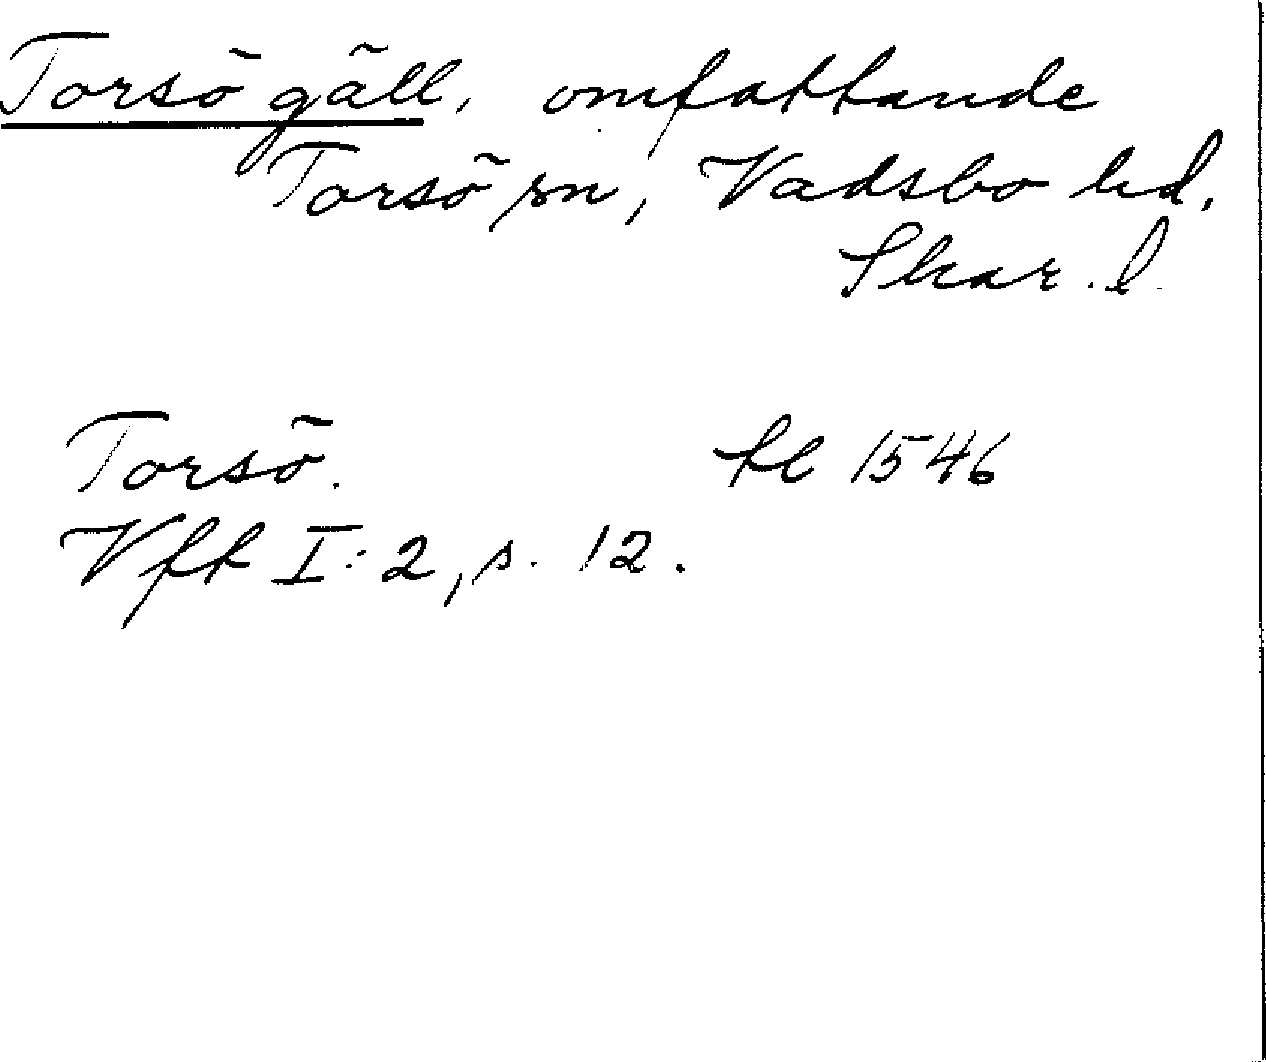 Torsö gäll, omfattande
Torsö sn, Vadsbo hd.
Skar. l.
Torsö. fl 1546
Vff I:2, s. 12.